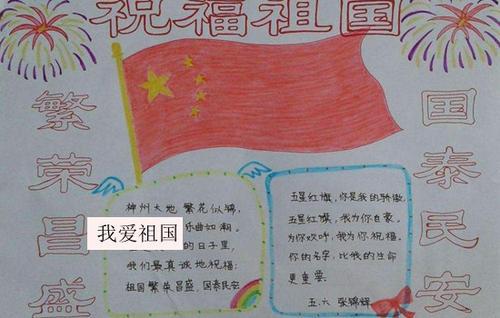 祝福祖国
繁荣昌盛
国泰民安
神州大地 繁花似锦,
乐曲如潮.
的日子里,
我们最真诚地祝福:
祖国繁荣昌盛,国泰民安
我爱祖国
五星红旗,你是我的骄傲,
五星红旗,我为你自豪。
为你欢呼,我为你祝福。
你的名字,比我的生命
更重要。
五.六